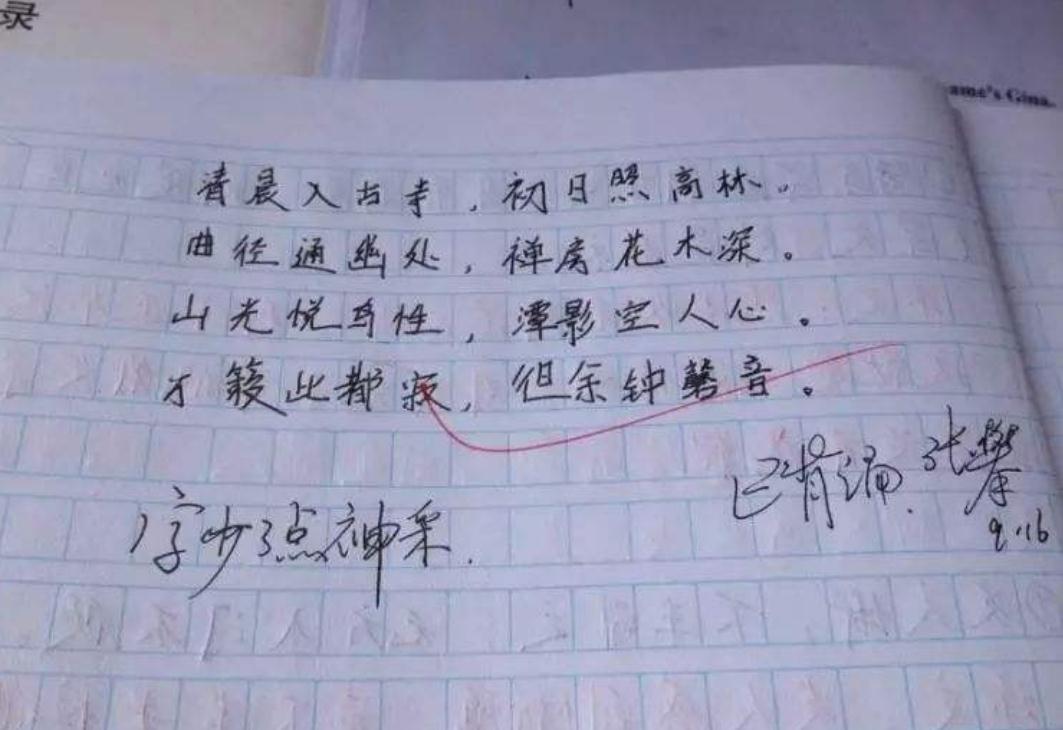 录
ame's Gina.
清晨入古寺，初日照高林。
曲径通幽处，禅房花木深。
山光悦鸟性，潭影空人心。
万籁此都寂，但余钟磬音。
已背诵. 张攀
9.16
字少点神采.